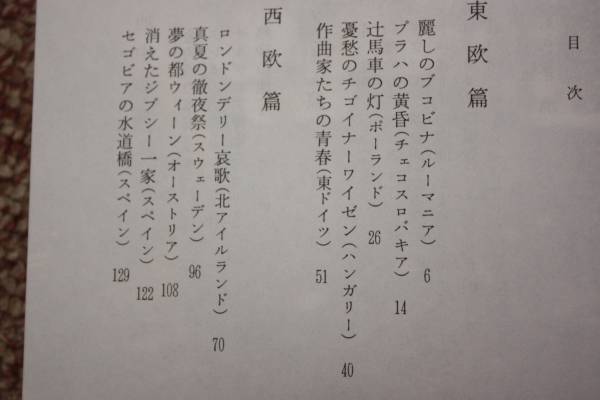 目次
東欧篇
麗しのブコビナ(ルーマニア) 6
プラハの黄昏(チェコスロバキア) 14
辻馬車の灯(ポーランド) 26
憂愁のチゴイナーワイゼン(ハンガリー) 40
作曲家たちの青春(東ドイツ) 51
西欧篇
ロンドンデリー哀歌(北アイルランド) 70
真夏の徹夜祭(スウェーデン) 96
夢の都ウィーン(オーストリア) 108
消えたジプシー一家(スペイン) 122
セゴビアの水道橋(スペイン) 129